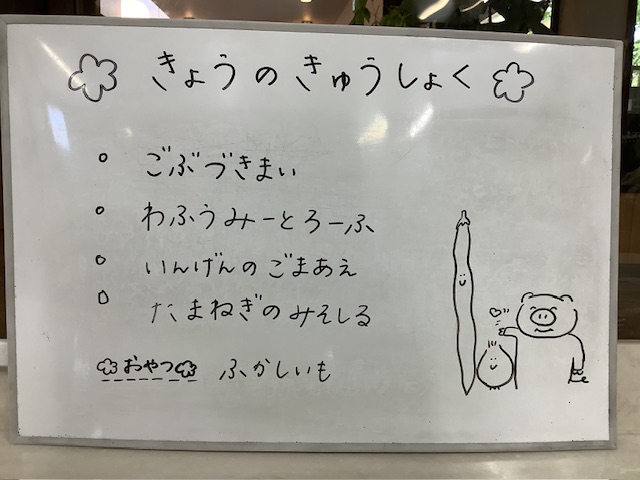 きょうのきゅうしょく
ごぶづきまい
わふうみーとろーふ
いんげんのごまあえ
たまねぎのみそしる
おやつ ふかしいも